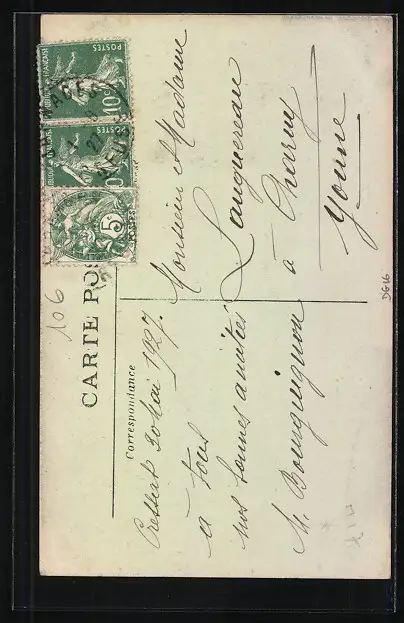 CARTE POS
Correspondance
106
30 Mai 1927.
à tous
nos bonnes amitiés
M. Bourguignon
Monsieur et Madame
Langereau
à Charny
Yonne
POSTES
10c
POSTES
10
5c
POSTES
27
MEUSE
D616